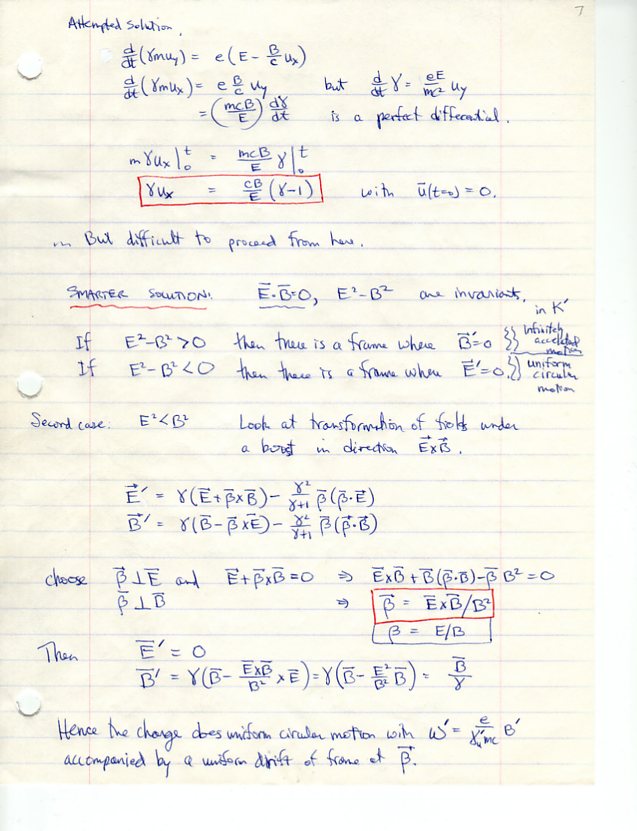 7
Attempted Solution.
d/dt (γmu_y) = e(E − B/c u_x)
d/dt (γmu_x) = e B/c u_y but d/dt γ = eE/mc² u_y
= (mcB/E) dγ/dt is a perfect differential.
mγu_x |₀ᵗ = mcB/E γ |₀ᵗ
γu_x = cB/E (γ−1) with ū(t=0) = 0.
... But difficult to proceed from here.
SMARTER SOLUTION: E⃗·B⃗=0, E²−B² are invariants.
in K′
If E²−B²>0 then there is a frame where B⃗′=0 } infinitely accelerated motion
If E²−B²<0 then there is a frame where E⃗′=0. } uniform circular motion
Second case: E²<B² Look at transformation of fields under
a boost in direction E⃗×B⃗.
E⃗′ = γ(E⃗+β⃗×B⃗) − γ²/(γ+1) β⃗(β⃗·E⃗)
B⃗′ = γ(B⃗−β⃗×E⃗) − γ²/(γ+1) β⃗(β⃗·B⃗)
choose β⃗⊥E⃗ and E⃗+β⃗×B⃗=0 ⇒ E⃗×B⃗+B⃗(β⃗·B⃗)−β⃗B²=0
β⃗⊥B⃗ ⇒ β⃗ = E⃗×B⃗/B²
β = E/B
Then E⃗′ = 0
B⃗′ = γ(B⃗ − E⃗×B⃗/B² × E⃗) = γ(B⃗ − E²/B² B⃗) = B⃗/γ
Hence the charge does uniform circular motion with ω′ = e/(γ′ᵤmc) B′
accompanied by a uniform drift of frame at β⃗.